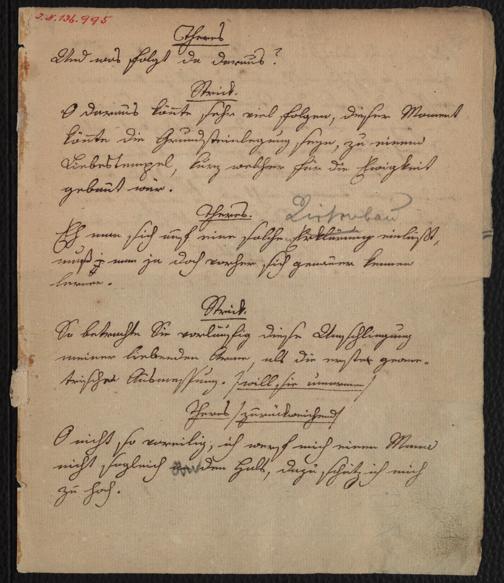 J.N. 136.995
Theres
Und was folgt da daraus?
Strick.
O daraus könnte sehr viel folgen, dieser Moment
könnte die Grundsteinlegung seyn, zu einem
Liebestempel, welcher für die Ewigkeit
gebaut wär.
Theres.
Eh man sich auf eine solche einläßt,
muß man ja doch vorher sich genauer kennen
lernen.
Strick.
So betrachten Sie vorläufig diese Umschlingung
meiner liebenden Arme, als die erste geome-
trische Ausmessung. /will sie umarmen/
Theres /zurückweichend/
O nicht so voreilig, ich werf mich einem Manne
nicht sogleich den Hals, dazu schätz ich mich
zu hoch.